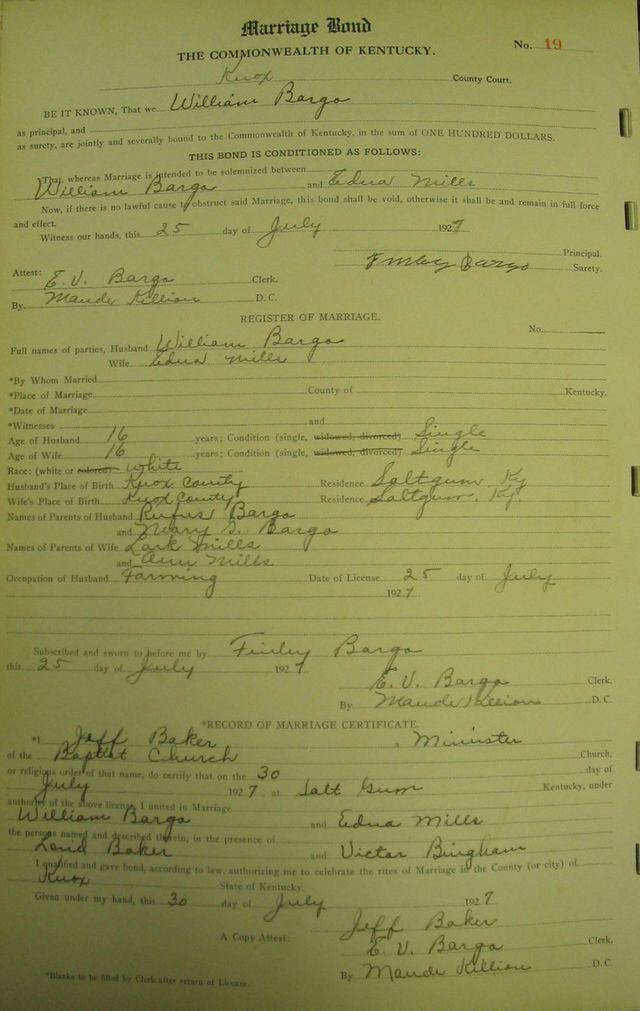 Marriage Bond
THE COMMONWEALTH OF KENTUCKY. No. 19
Knox County Court.
BE IT KNOWN, That we William Bargo
as principal, and
as surety, are jointly and severally bound to the Commonwealth of Kentucky, in the sum of ONE HUNDRED DOLLARS.
THIS BOND IS CONDITIONED AS FOLLOWS:
That whereas Marriage is intended to be solemnized between
William Bargo and Edna Mills
Now, if there is no lawful cause to obstruct said Marriage, this bond shall be void, otherwise it shall be and remain in full force
and effect.
Witness our hands, this 25 day of July 1927
Principal.
Finley Bargo Surety.
Attest: E. V. Bargo Clerk.
By Maude Killion D. C.
REGISTER OF MARRIAGE.
No.
Full names of parties, Husband William Bargo
Wife Edna Mills
*By Whom Married
*Place of Marriage County of Kentucky.
*Date of Marriage
*Witnesses and
Age of Husband 16 years; Condition (single, widowed, divorced) Single
Age of Wife 16 years; Condition (single, widowed, divorced) Single
Race: (white or colored) White
Husband's Place of Birth Knox County Residence Saltgum, Ky
Wife's Place of Birth Knox County Residence Saltgum, Ky.
Names of Parents of Husband Rufus Bargo
and Mary S. Bargo
Names of Parents of Wife Lark Mills
and Ann Mills
Occupation of Husband Farming Date of License 25 day of July
1927
Subscribed and sworn to before me by Finley Bargo
this 25 day of July 1927
E. V. Bargo Clerk,
By Maude Killion D. C.
*RECORD OF MARRIAGE CERTIFICATE.
*I Jeff Baker a Minister
of the Baptist Church Church,
or religious order of that name, do certify that on the 30 day of
July 1927 at Salt Gum Kentucky, under
authority of the above license, I united in Marriage
William Bargo and Edna Mills
the persons named and described therein, in the presence of
Baker and Victor Bingham
I qualified and gave bond, according to law, authorizing me to celebrate the rites of Marriage in the County (or city) of
Knox State of Kentucky.
Given under my hand, this 30 day of July 1927
Jeff Baker
A Copy Attest: E. V. Bargo Clerk,
By Maude Killion D. C.
*Blanks to be filled by Clerk after return of License.